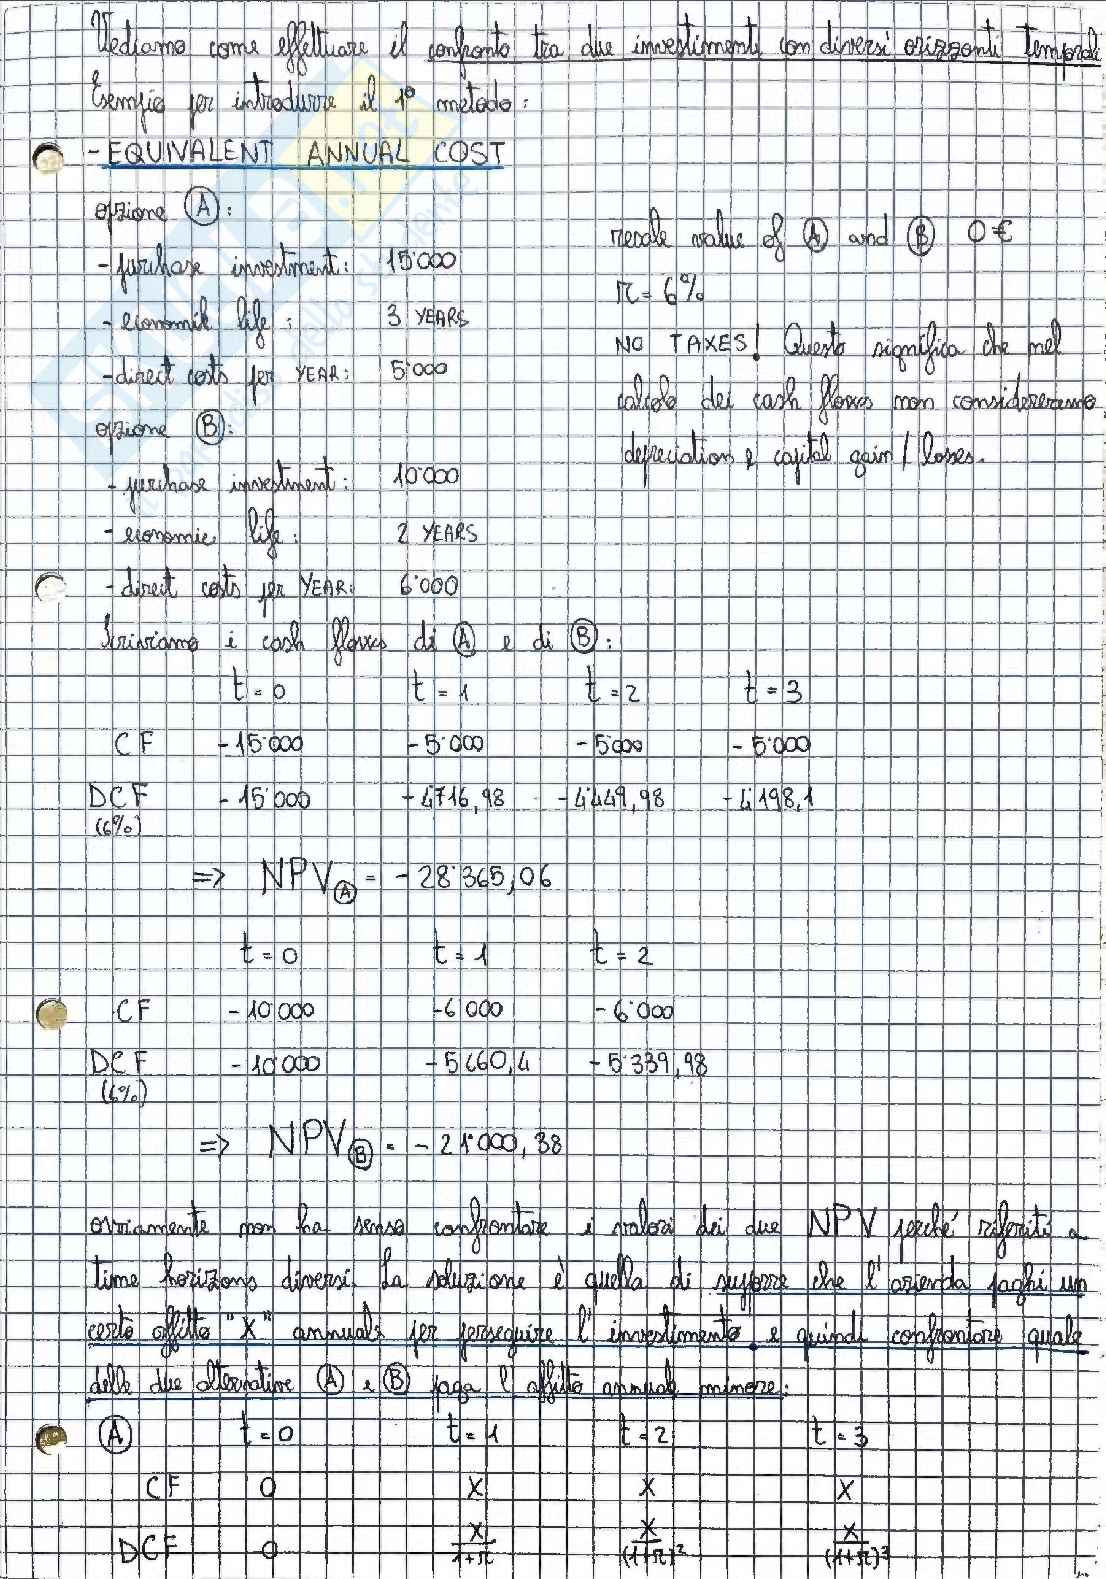 Vediamo come effettuare il confronto tra due investimenti con diversi orizzonti temporali
Esempio per introdurre il 1° metodo:
- EQUIVALENT ANNUAL COST
opzione Ⓐ:
- purchase investment: 15'000
- economic life: 3 YEARS
- direct costs per YEAR: 5'000
opzione Ⓑ:
- purchase investment: 10'000
- economic life: 2 YEARS
- direct costs per YEAR: 6'000
resale value of Ⓐ and Ⓑ 0€
r = 6%
NO TAXES! Questo significa che nel
calcolo dei cash flows non considereremo
depreciation e capital gain / losses.
Scriviamo i cash flows di Ⓐ e di Ⓑ:
t=0 t=1 t=2 t=3
CF -15'000 -5'000 -5'000 -5'000
DCF -15'000 -4'716,98 -4'449,98 -4'198,1
(6%)
=> NPVⒶ = -28'365,06
t=0 t=1 t=2
CF -10'000 -6'000 -6'000
DCF -10'000 -5'660,4 -5'339,98
(6%)
=> NPVⒷ = -21'000,38
ovviamente non ha senso confrontare i valori dei due NPV perché riferiti a
time horizons diversi. La soluzione è quella di supporre che l'azienda paghi un
certo affitto "X" annuale per perseguire l'investimento e quindi confrontare quale
delle due alternative Ⓐ e Ⓑ paga l'affitto annuale minore:
Ⓐ t=0 t=1 t=2 t=3
CF 0 X X X
DCF 0 X/(1+r) X/(1+r)² X/(1+r)³